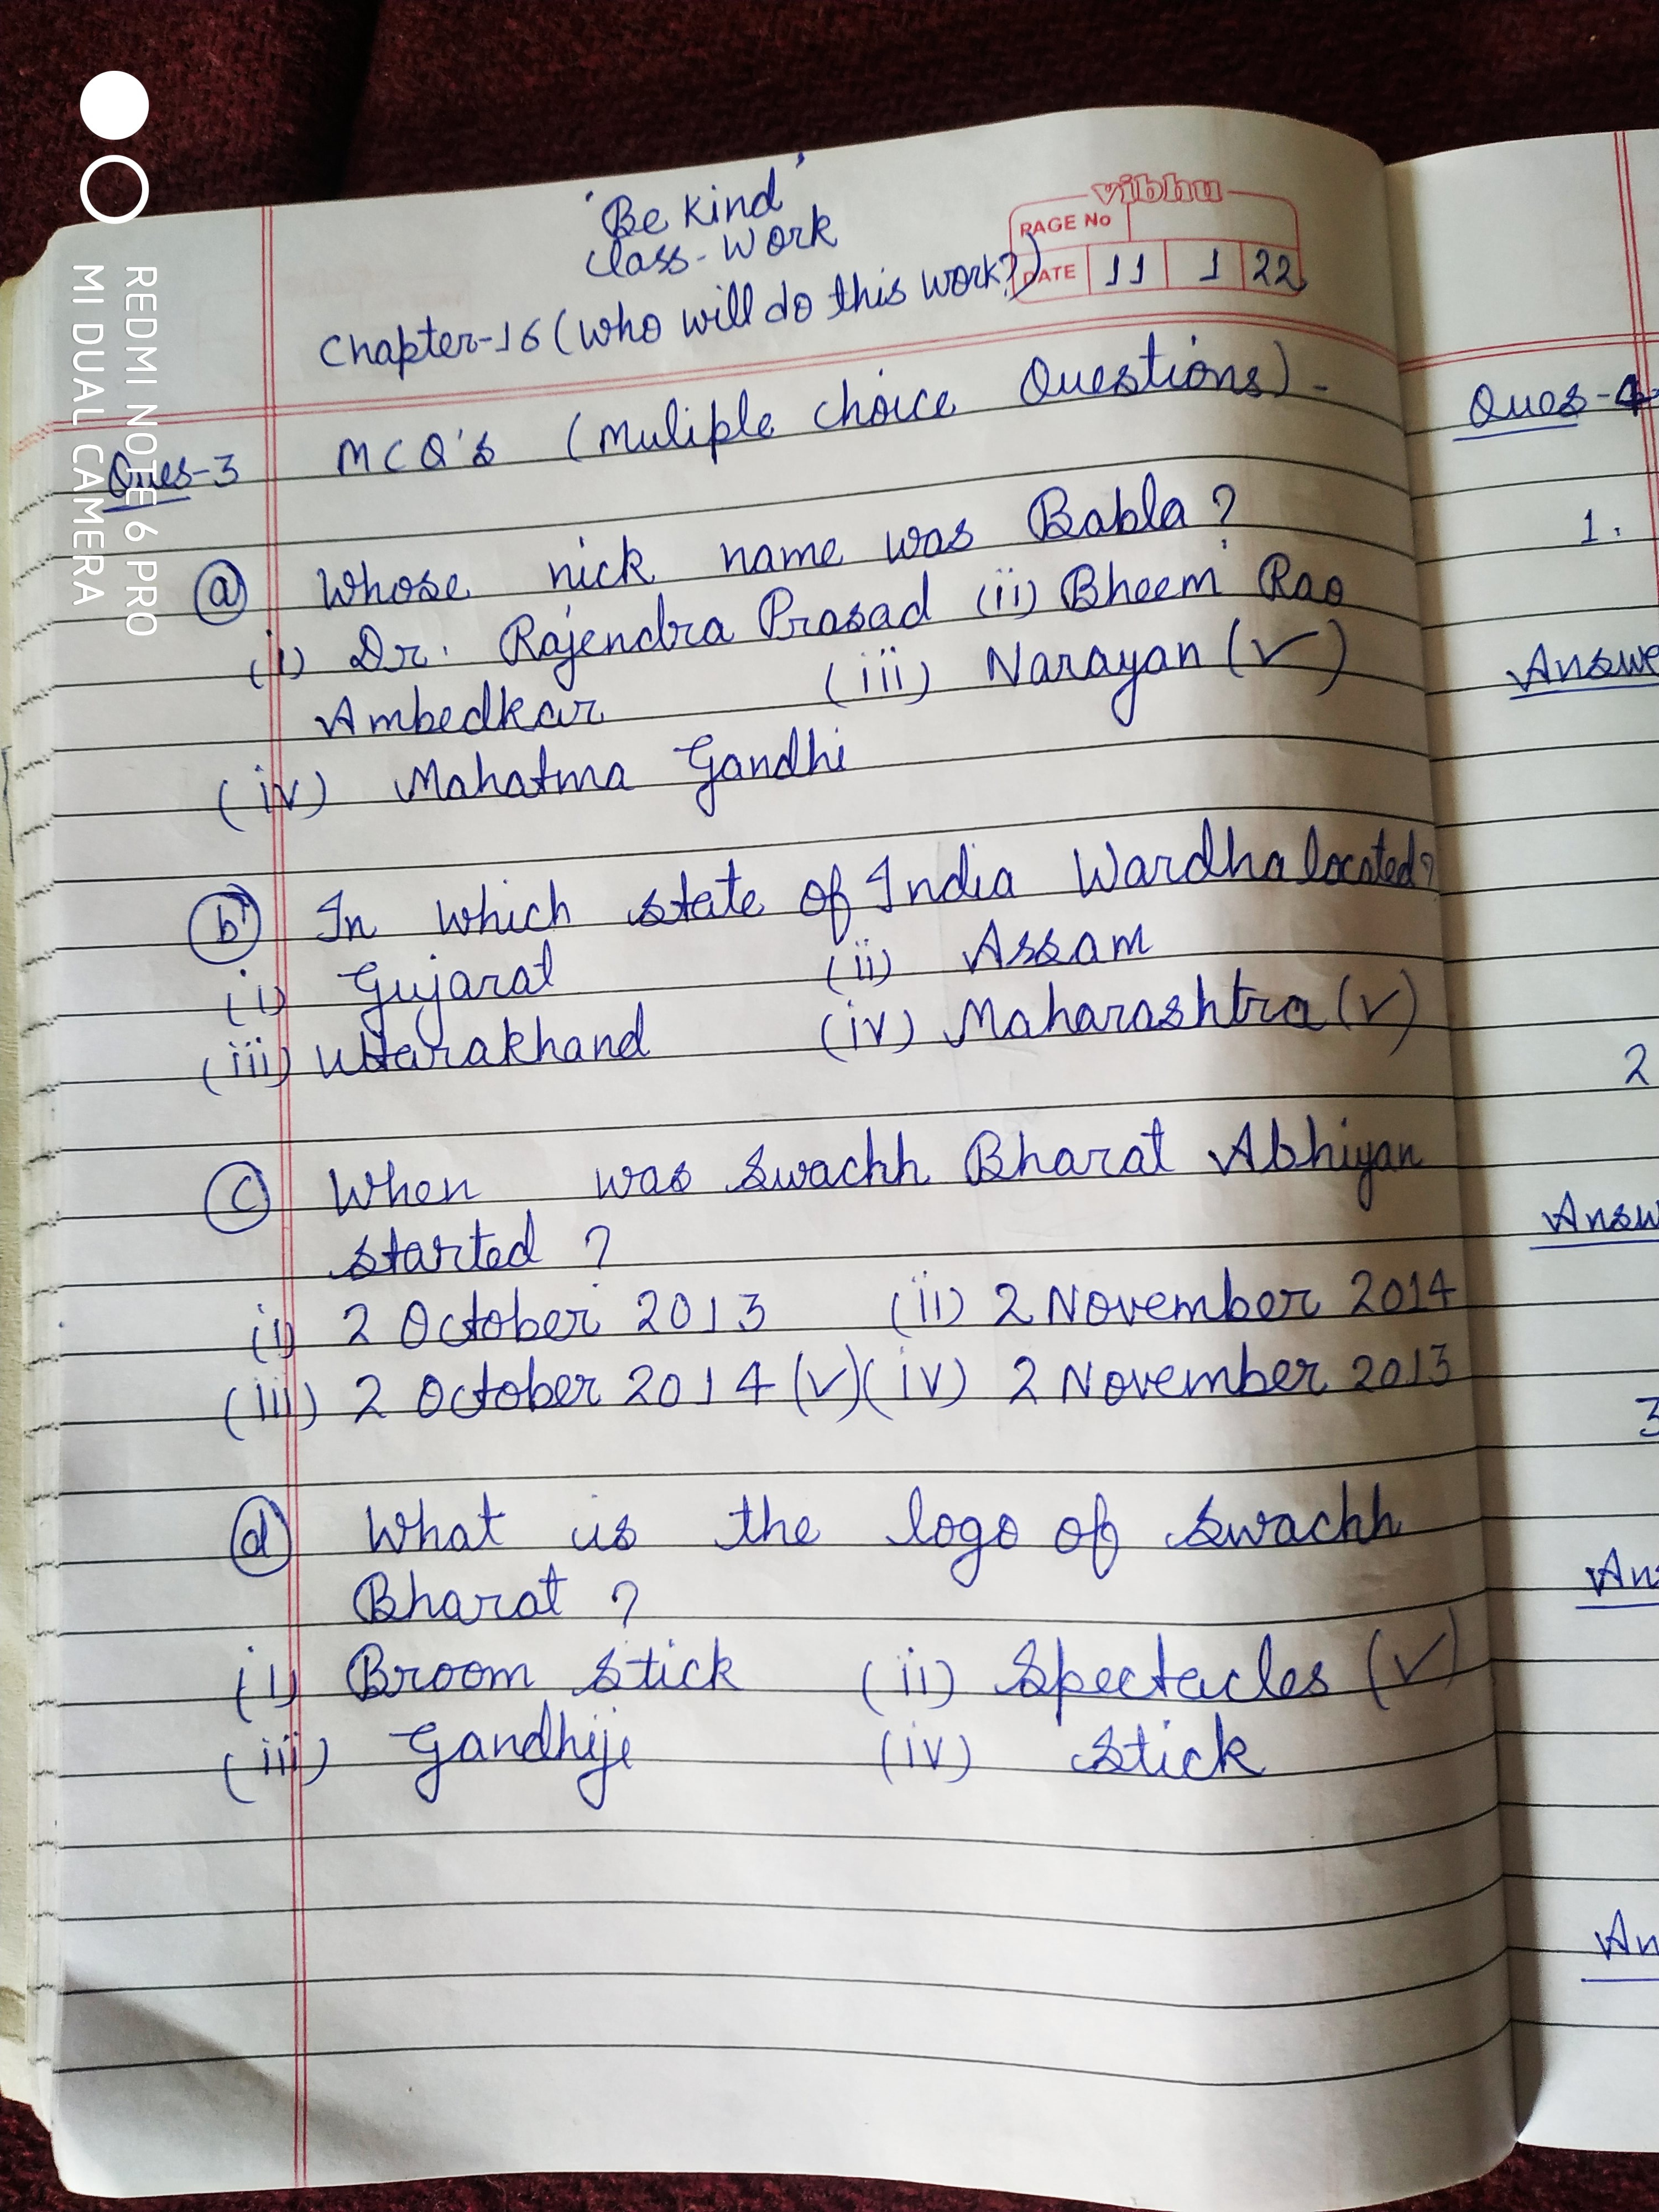 'Be kind'
Class-Work
vibhu
PAGE No
DATE 11 1 22
Chapter-16 (Who will do this work?)
Ques-3 MCQ's (Muliple choice Questions)-
(a) Whose nick name was Babla?
(i) Dr. Rajendra Prasad (ii) Bheem Rao
Ambedkar (iii) Narayan (✓)
(iv) Mahatma Gandhi
(b) In which state of India Wardha located?
(i) Gujarat (ii) Assam
(iii) Uttarakhand (iv) Maharashtra (✓)
(c) When was Swachh Bharat Abhiyan
started ?
(i) 2 October 2013 (ii) 2 November 2014
(iii) 2 October 2014 (✓) (iv) 2 November 2013
(d) What is the logo of Swachh
Bharat ?
(i) Broom stick (ii) Spectacles (✓)
(iii) Gandhiji (iv) Stick
Ques-4
1.
Answe
2
Answ
3
Ans
An
REDMI NOTE 6 PRO
MI DUAL CAMERA